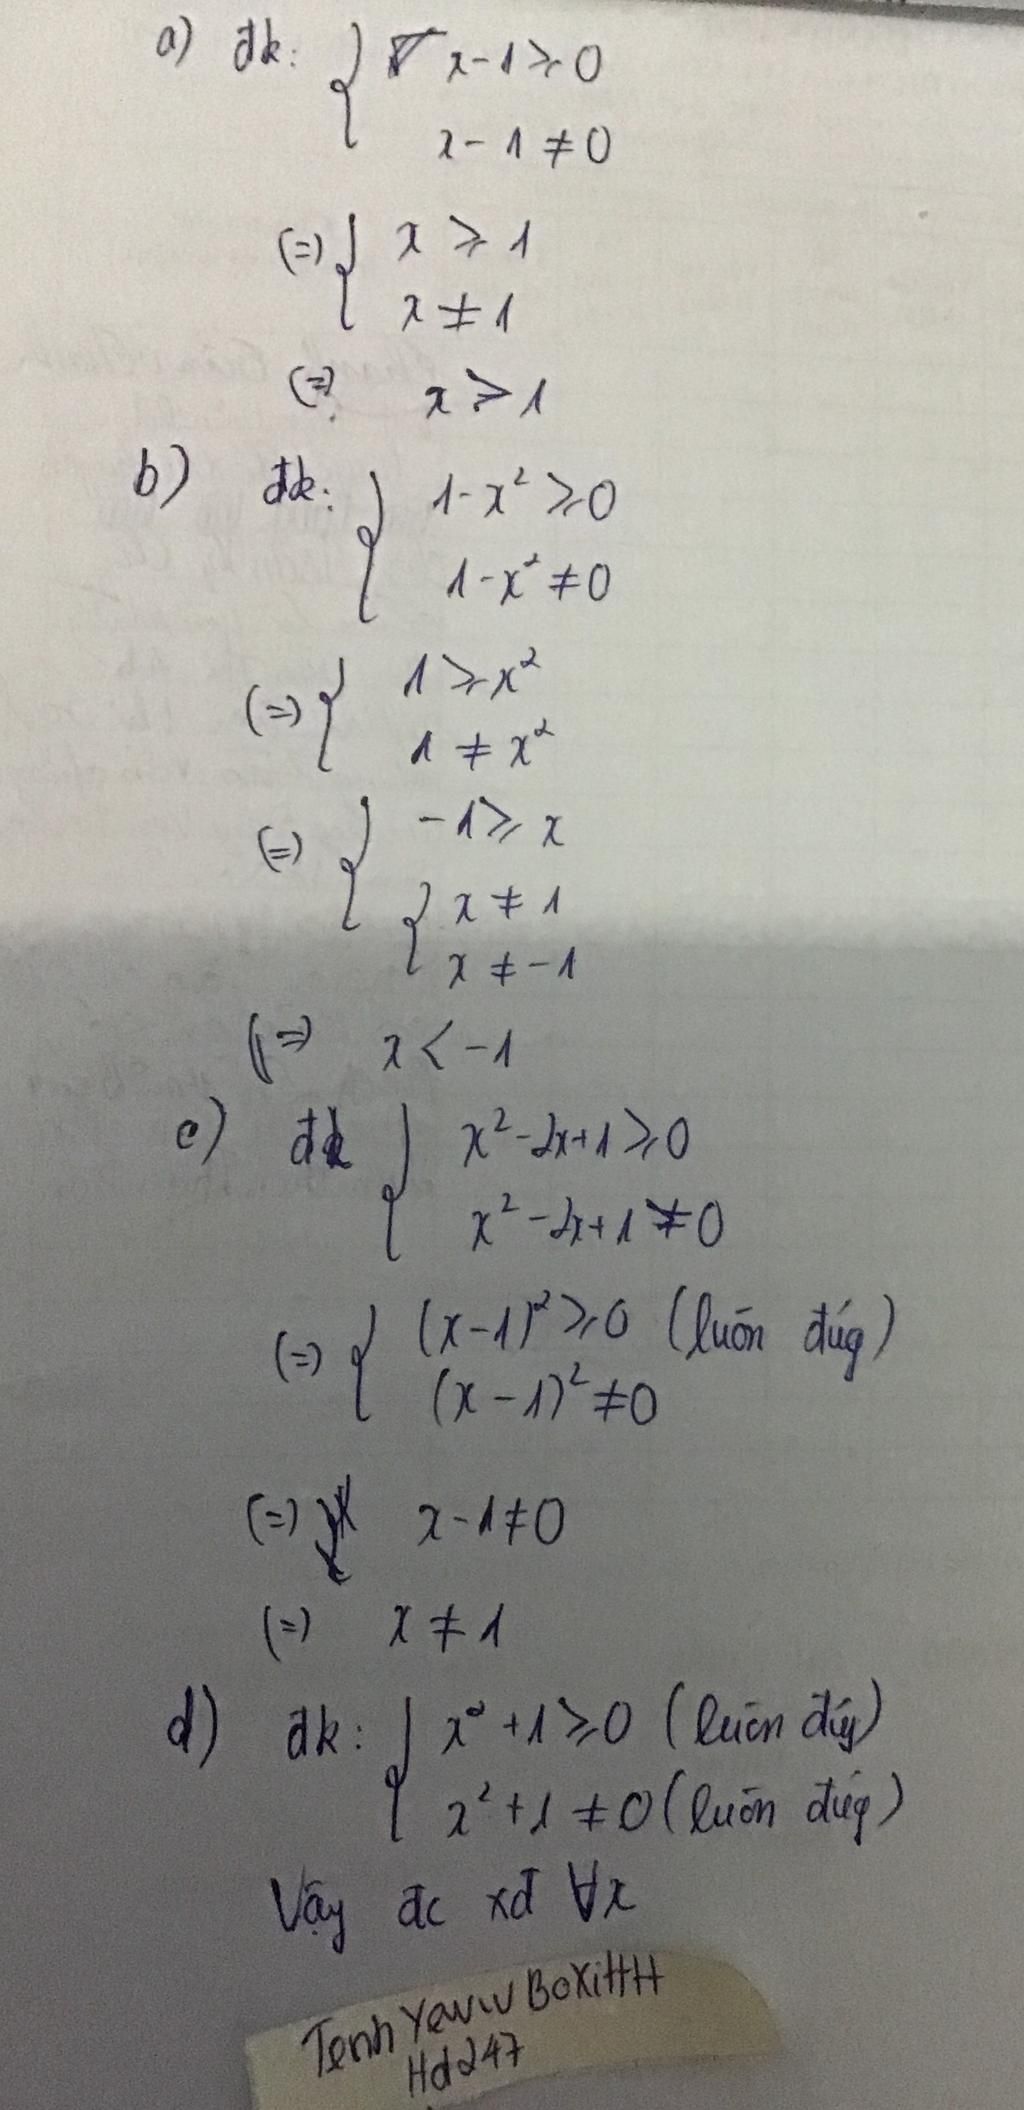 a) đk: { x-1 ≥ 0
x-1 ≠ 0
(=) { x ≥ 1
x ≠ 1
(=) x > 1
b) đk: { 1-x² ≥ 0
1-x² ≠ 0
(=) { 1 ≥ x²
1 ≠ x²
(=) { -1 ≥ x
{ x ≠ 1
x ≠ -1
(=) x < -1
c) đk { x²-2x+1 ≥ 0
x²-2x+1 ≠ 0
(=) { (x-1)² ≥ 0 (luôn đúg)
(x-1)² ≠ 0
(=) x-1 ≠ 0
(=) x ≠ 1
d) đk: { x²+1 ≥ 0 (luôn đúg)
x²+1 ≠ 0 (luôn đúg)
Vậy đc xđ ∀x
Tenh Yewww BoXiHH
Hd247